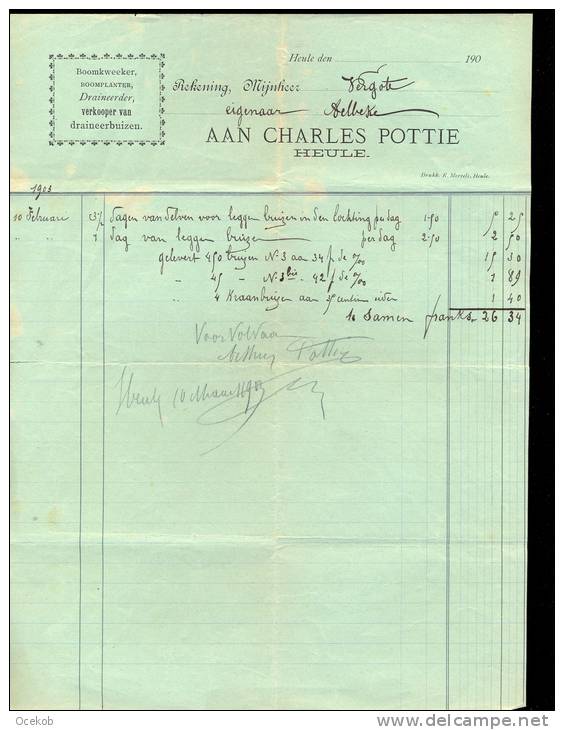 Boomkweeker,
BOOMPLANTER,
Draineerder,
verkooper van
draineerbuizen.
Heule den 190
Rekening, Mijnheer Vergote
eigenaar Aelbeke
AAN CHARLES POTTIE
HEULE.
Drukk. E. Mervels, Heule.
1903
10 Februari 3½ dagen van delven voor leggen buizen in den lochting per dag 1-50 5 25
" " 1 dag van leggen buizen per dag 2-50 2 50
gelevert 450 buizen N° 3 aan 34 f. de o/oo 15 30
" 45 - N° 3bis 42 f de o/oo 1 89
" 4 Kraanbuizen aan 35 centiem ider 1 40
te Samen franks 26 34
Voor Voldaan
Pottie
Heule 10 Maart 1903
Ocekob
www.delcampe.net